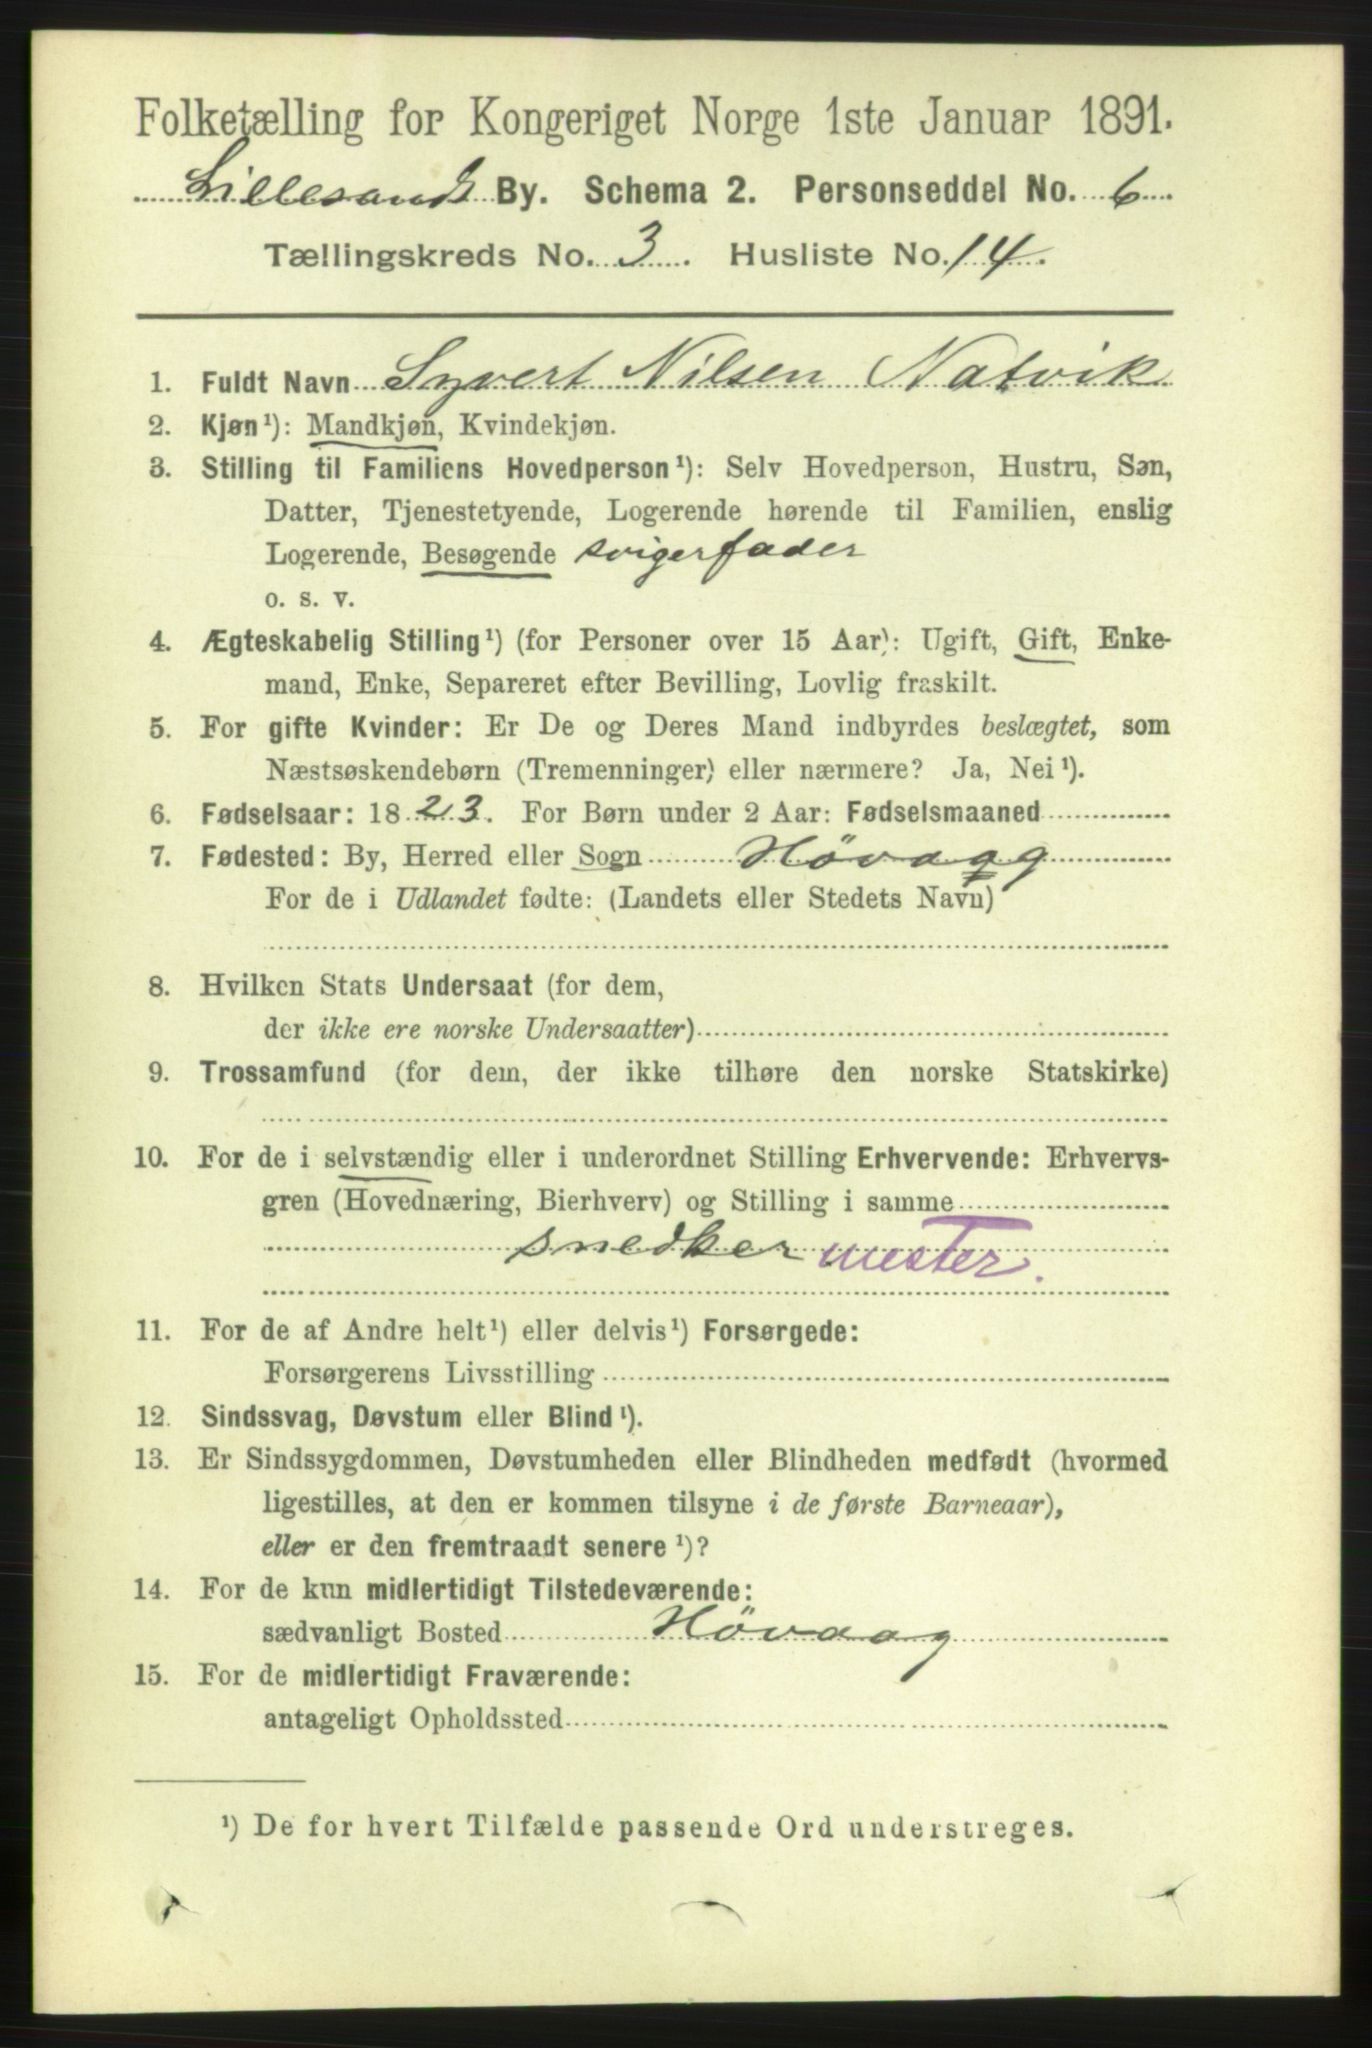 Folketælling for Kongeriget Norge 1ste Januar 1891.
Lillesands By. Schema 2. Personseddel No. 6
Tællingskreds No. 3. Husliste No. 14.
1. Fuldt Navn Syvert Nilsen Natvik
2. Kjøn¹): Mandkjøn, Kvindekjøn.
3. Stilling til Familiens Hovedperson¹): Selv Hovedperson, Hustru, Søn,
Datter, Tjenestetyende, Logerende hørende til Familien, enslig
Logerende, Besøgende svigerfader
o. s. v.
4. Ægteskabelig Stilling¹) (for Personer over 15 Aar): Ugift, Gift, Enke-
mand, Enke, Separeret efter Bevilling, Lovlig fraskilt.
5. For gifte Kvinder: Er De og Deres Mand indbyrdes beslægtet, som
Næstsøskendebørn (Tremenninger) eller nærmere? Ja, Nei¹).
6. Fødselsaar: 1823. For Børn under 2 Aar: Fødselsmaaned
7. Fødested: By, Herred eller Sogn Høvaag
For de i Udlandet fødte: (Landets eller Stedets Navn)
8. Hvilken Stats Undersaat (for dem,
der ikke ere norske Undersaatter)
9. Trossamfund (for dem, der ikke tilhøre den norske Statskirke)
10. For de i selvstændig eller i underordnet Stilling Erhvervende: Erhvervs-
gren (Hovednæring, Bierhverv) og Stilling i samme
snedker mester.
11. For de af Andre helt¹) eller delvis¹) Forsørgede:
Forsørgerens Livsstilling
12. Sindssvag, Døvstum eller Blind¹).
13. Er Sindssygdommen, Døvstumheden eller Blindheden medfødt (hvormed
ligestilles, at den er kommen tilsyne i de første Barneaar),
eller er den fremtraadt senere¹)?
14. For de kun midlertidigt Tilstedeværende:
sædvanligt Bosted Høvaag
15. For de midlertidigt Fraværende:
antageligt Opholdssted
¹) De for hvert Tilfælde passende Ord understreges.